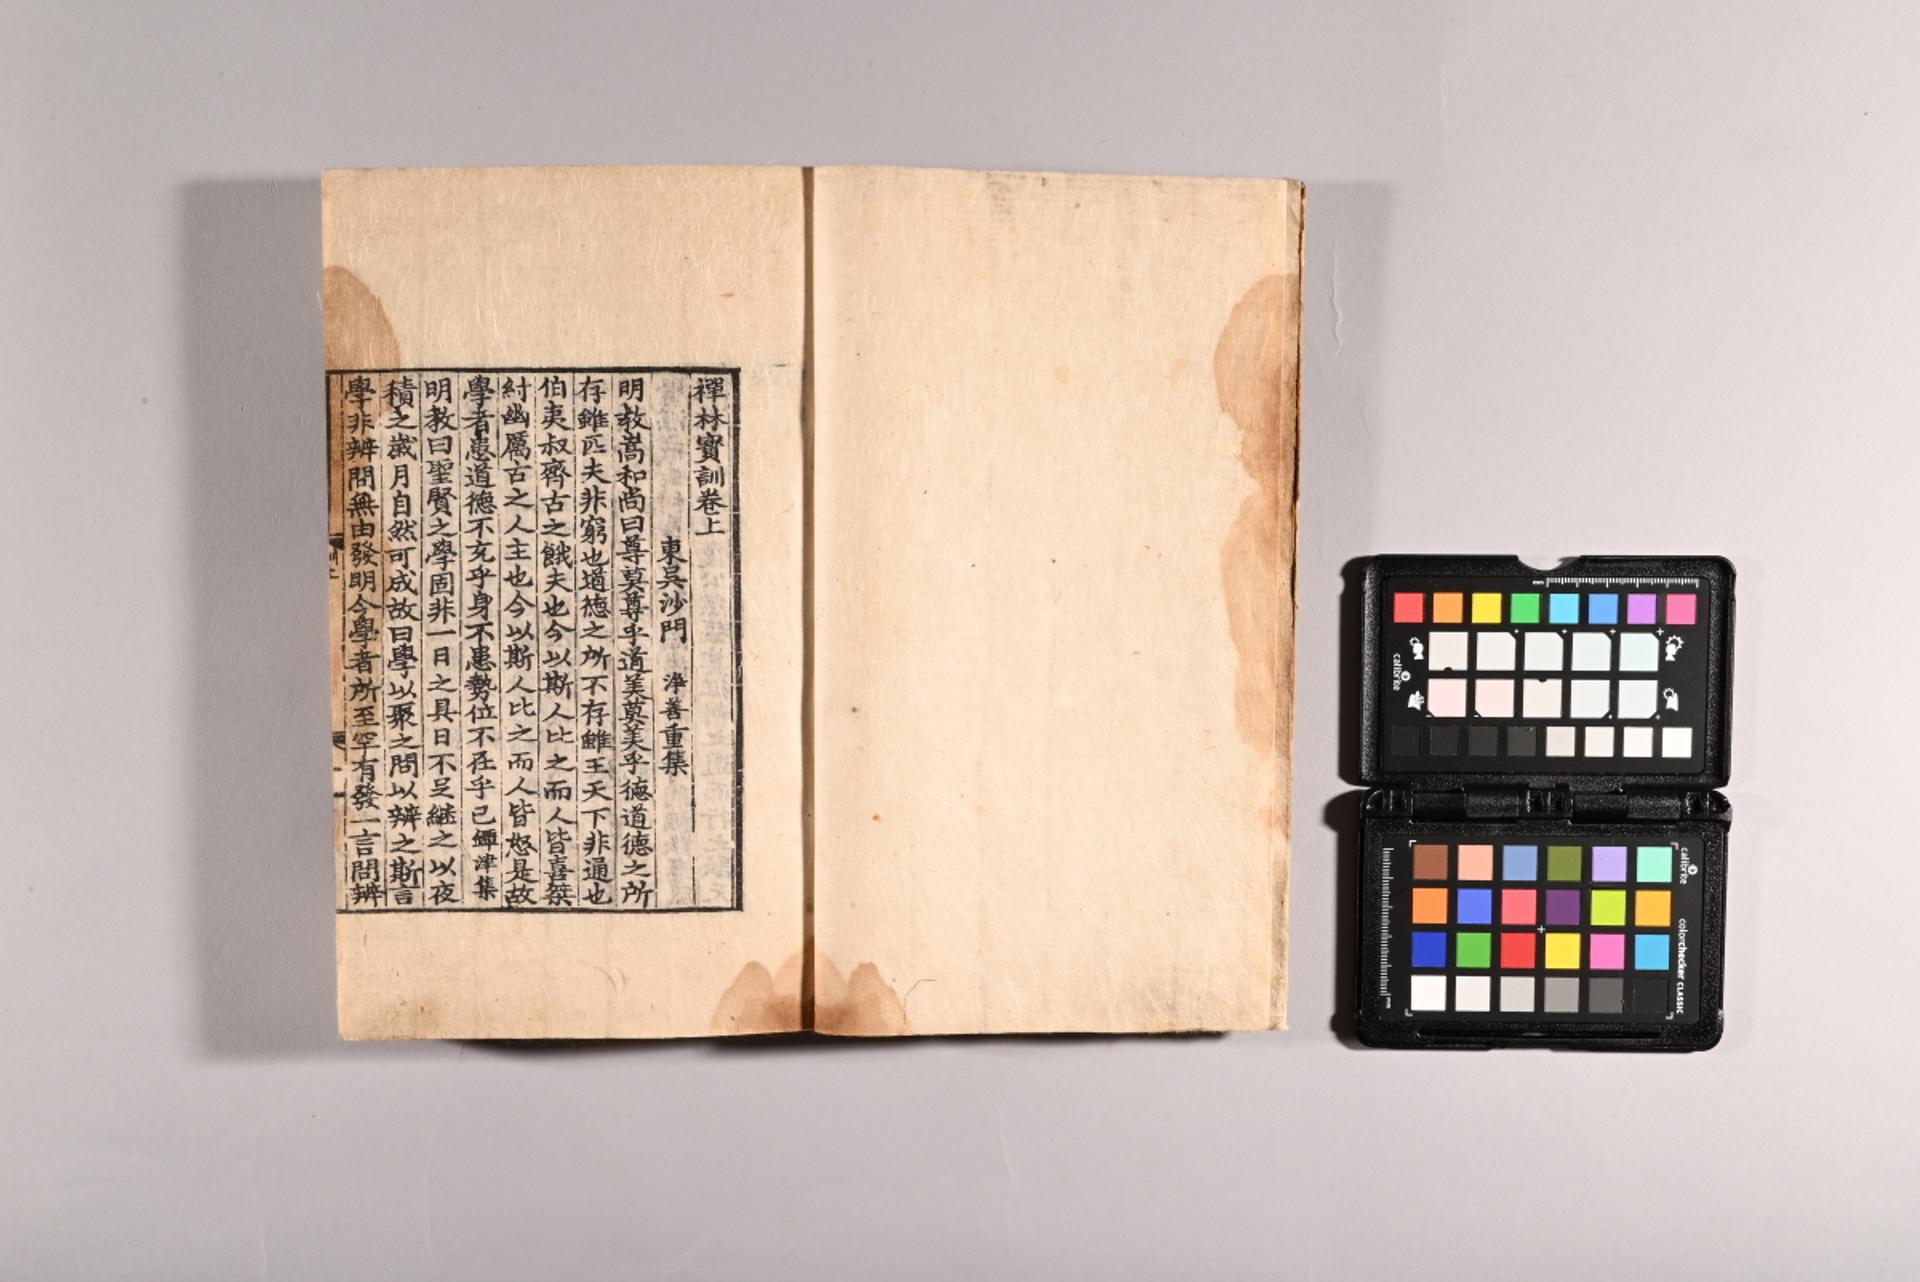 禪林寶訓卷上
東吳沙門 淨善重集
明教嵩和尚曰尊莫尊乎道美莫美乎德道德之所
存雖匹夫非窮也道德之所不存雖王天下非通也
伯夷叔齊古之餓夫也今以斯人比之而人皆喜桀
紂幽厲古之人主也今以斯人比之而人皆怒是故
學者患道德不充乎身不患勢位不在乎己鐔津集
明教曰聖賢之學固非一日之具日不足繼之以夜
積之歲月自然可成故曰學以聚之問以辨之斯言
學非辨問無由發明今學者所至罕有發一言問辨
calibrite
colorchecker CLASSIC
calibrite
mm
mm